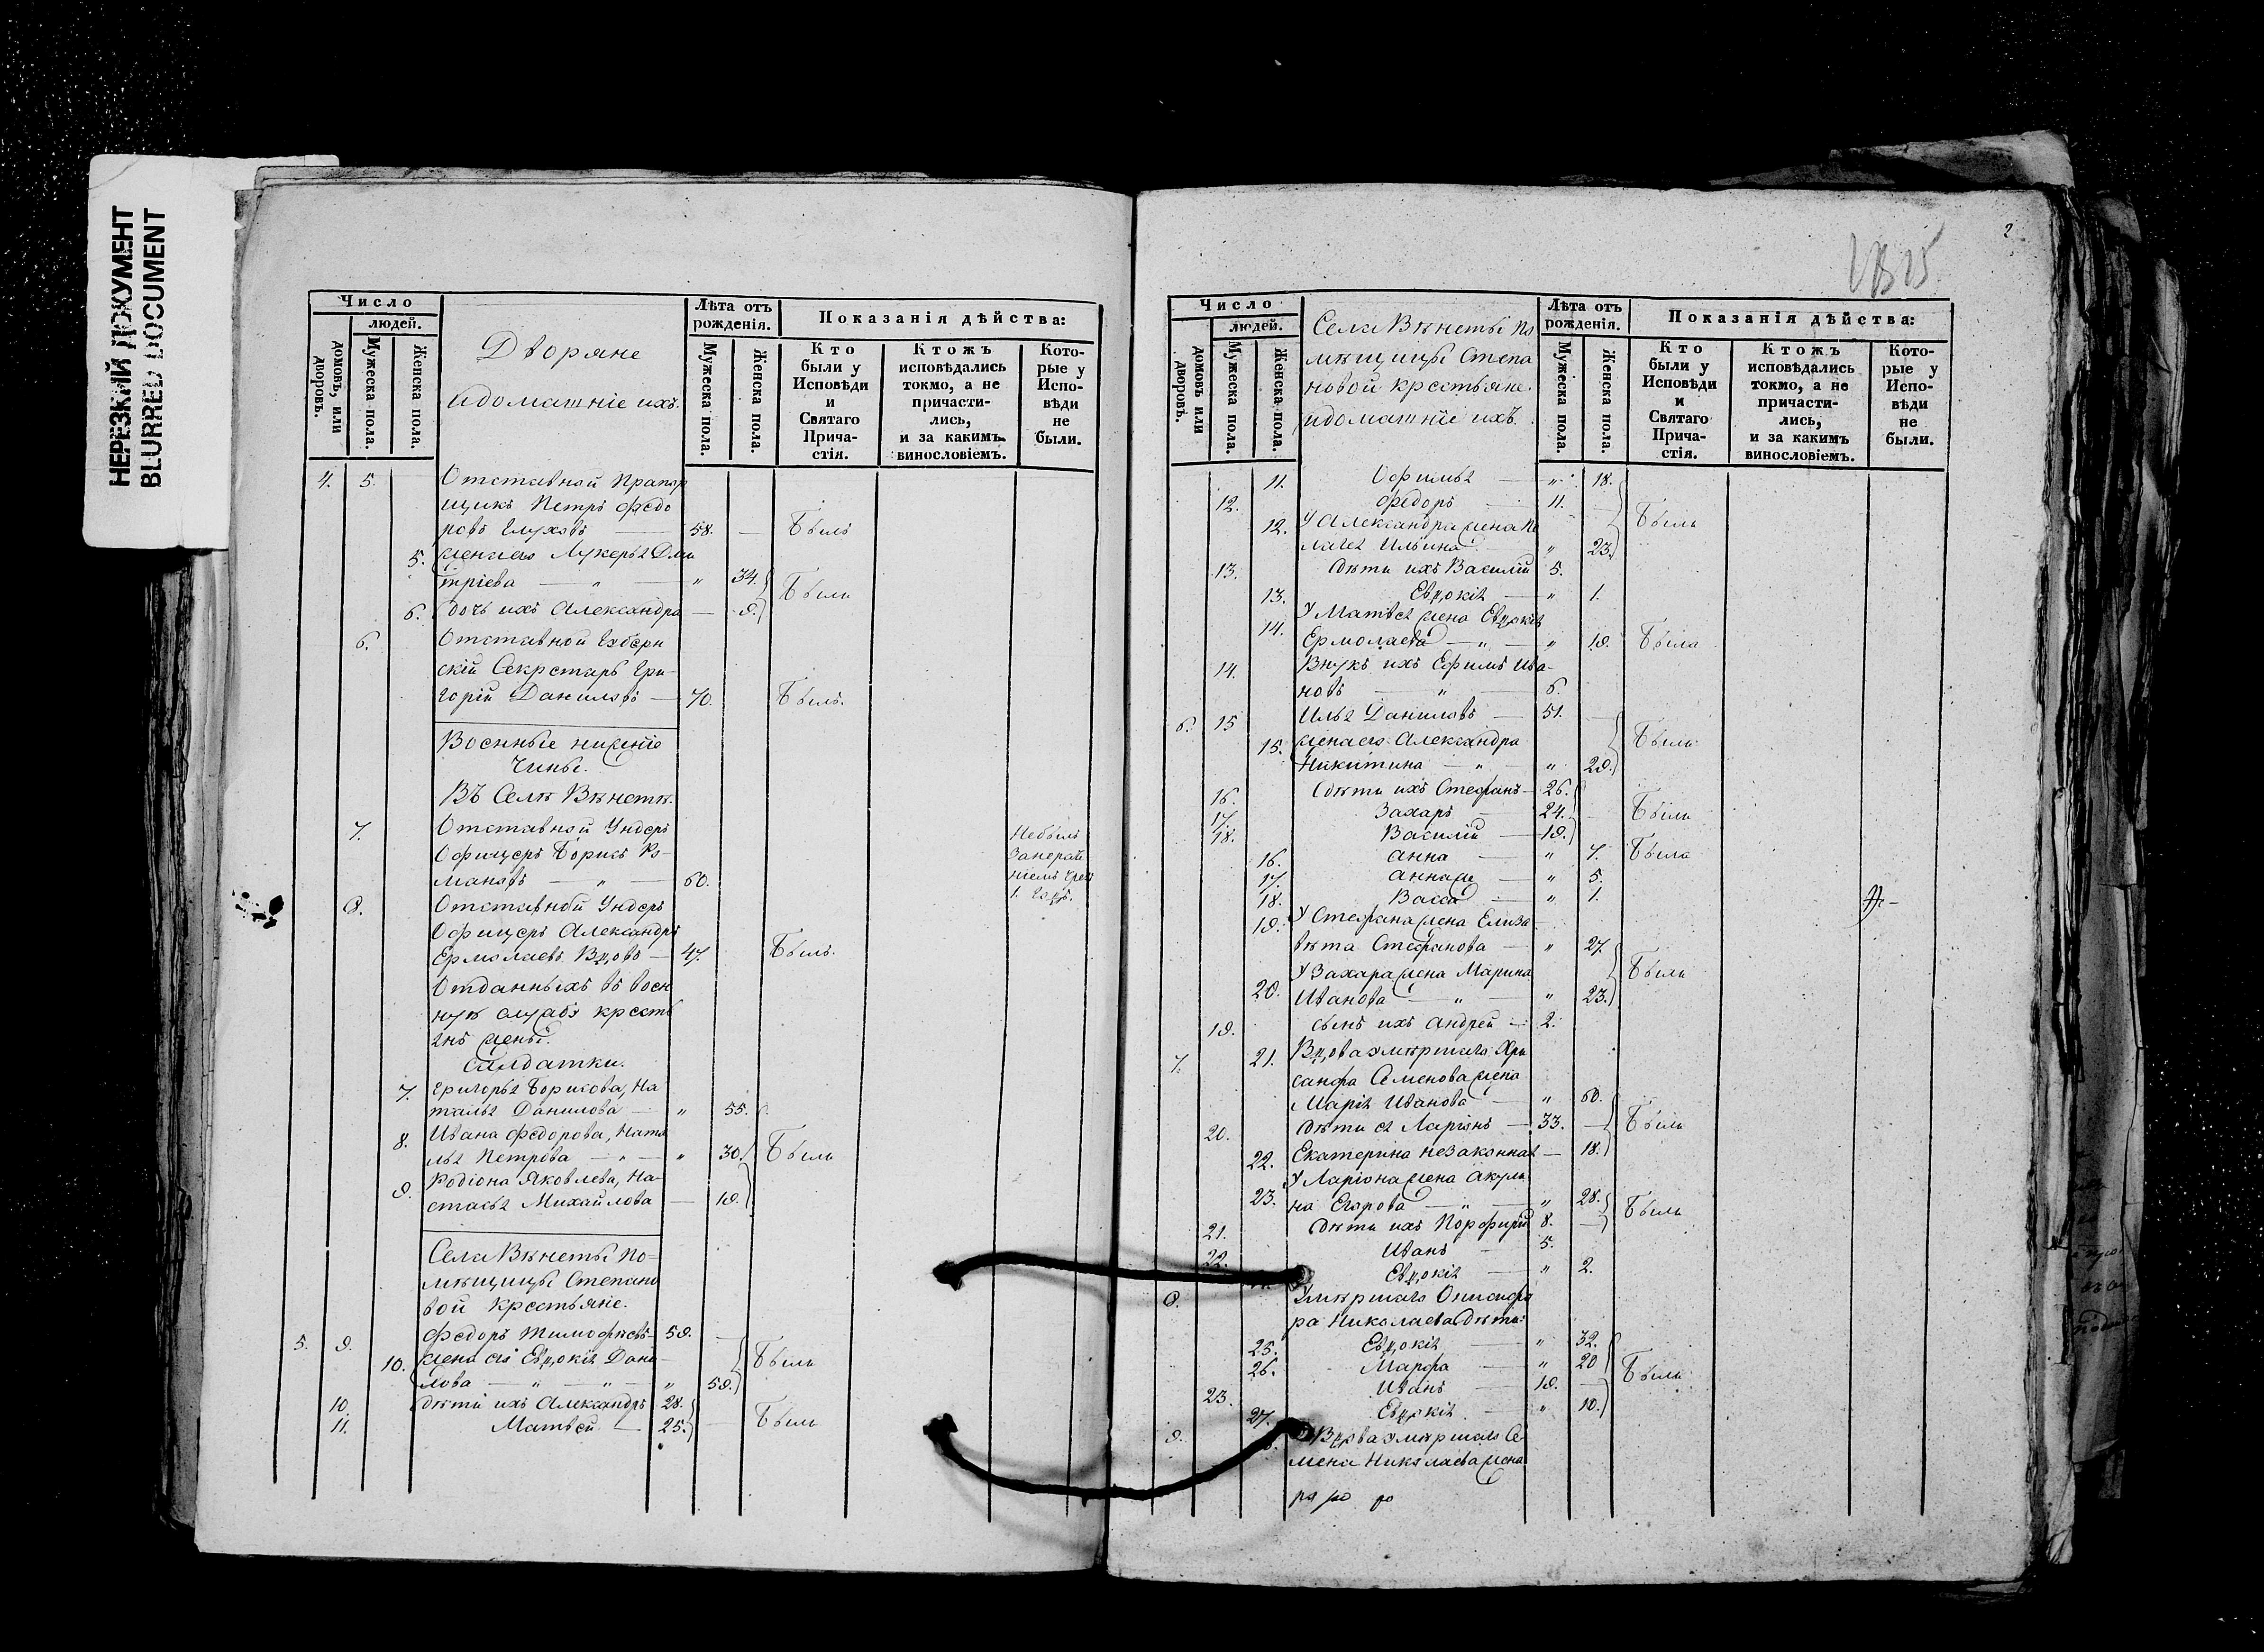 НЕРЕЗКИЙ ДОКУМЕНТ
BLURRED DOCUMENT
Число
людей.
домовъ, или дворовъ.
Мужеска пола.
Женска пола.
Дворяне
идомашніе ихъ.
Лѣта отъ рожденія.
Мужеска пола.
Женска пола.
Показанія дѣйства:
Кто были у Исповѣди и Святаго Причастія.
Ктожъ исповѣдались токмо, а не причастились, и за какимъ винословіемъ.
Которые у Исповѣди не были.
4. 5. Отставной Прапор
щикъ Петръ Федо
ровъ Глуховъ — 58. — Былъ
5. жена его Лукерья Дми
тріева — „ — „ 34. Были
6. дочь ихъ Александра — 9.
6. Отставной Губерн
скій Секретарь Гри-
горій Даниловъ — 70. Былъ.
Военные нижніе
Чины.
Въ Селѣ Вѣнетѣ.
7. Отставной Ундеръ Небылъ
Офицеръ Борисъ Ро-
мановъ — „ — 60.
1. годъ.
8. Отставной Ундеръ
Офицеръ Александръ
Ермолаевъ Вдовъ — 47. Былъ.
Отданныхъ въ воен
ную службу кресть
янъ жены.
Салдатки.
7. Григорья Борисова, На
талья Данилова — „ 55.
8. Ивана Федорова, Ната
лья Петрова — „ — „ 30. Были
9. Родіона Яковлева, На-
стасья Михайлова — 19.
Села Вѣнеты По-
мѣщицы Степано
вой крестьяне.
5. 9. Федоръ Тимофѣевъ 59. —
10. жена его Евдокія Дани- Были
лова — „ — „ — „ 59.
10. дѣти ихъ Александръ 28.
11. Матвей — 25. — Были
2
Число
людей.
домовъ или дворовъ.
Мужеска пола.
Женска пола.
Села Вѣнеты По
мѣщицы Степа
новой крестьяне.
идомашніе ихъ.
Лѣта отъ рожденія.
Мужеска пола.
Женска пола.
Показанія дѣйства:
Кто были у Исповѣди и Святаго Причастія.
Ктожъ исповѣдались токмо, а не причастились, и за какимъ винословіемъ.
Которые у Исповѣди не были.
11. Офимья — „ 18.
12. Федоръ — 11. — Были
12. У Александра жена Пе
лагея Ильина — „ 23.
13. дѣти ихъ Василій 5.
13. Евдокія — „ 1.
У Матвея жена Евдокія
14. Ермолаева — „ — „ 19. Была
14. Внукъ ихъ Ефимъ Ива-
новъ — „ — 6.
6. 15 Илья Даниловъ — 51. —
15. жена его Александра Были
Никитина — „ — „ 29.
16. дѣти ихъ Стефанъ — 26.
17. Захаръ — 24. — Были
18. Василій — 19.
16. Анна — „ 7. Была
17. Анна же — „ 5.
18. Васса — „ 1.
19. У Стефана жена Елиза-
вѣта Стефанова — „ 27.
У Захара жена Марина Были
20. Иванова — „ — „ 23.
19. сынъ ихъ Андрей — 2.
7. 21. Вдова умѣршаго Хри
санфа Семенова жена
Марія Иванова — „ 60.
20. дѣти ея Ларіонъ — 33. — Были
22. Екатерина незаконная — 18.
У Ларіона жена Акули
23. на Егорова — „ — „ 28.
21. дѣти ихъ Порфирій 8. — Были
22. Иванъ — 5.
Евдокія — „ 2.
8. Умѣршаго Онисифо
ра Николаева дѣти:
25. Евдокія — „ 32.
26. Марфа — „ 20 Были
23. Иванъ — 19. —
27. Евдокія — „ 10.
9. Вдова умѣршаго Се
мена Николаева жена